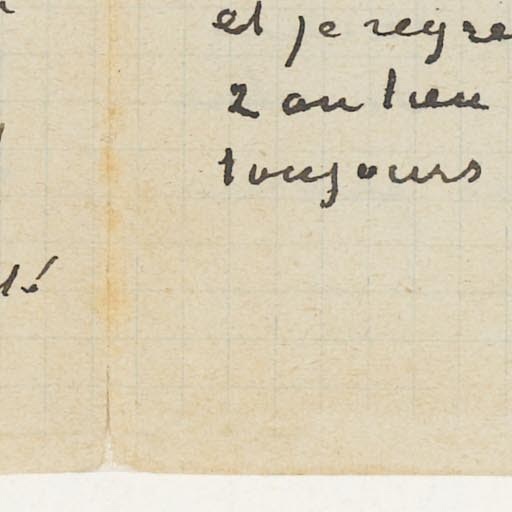 et je regre
2 au lieu
toujours
té!